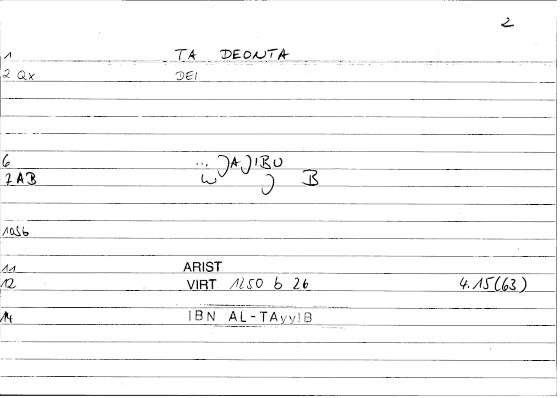 2
1 TA DEONTA
2 Qx DEI
6 ... )A)IBU
7 AB B
1056
11 ARIST
12 VIRT 1250 b 26 4.15(63)
14 IBN AL-TAyyIB